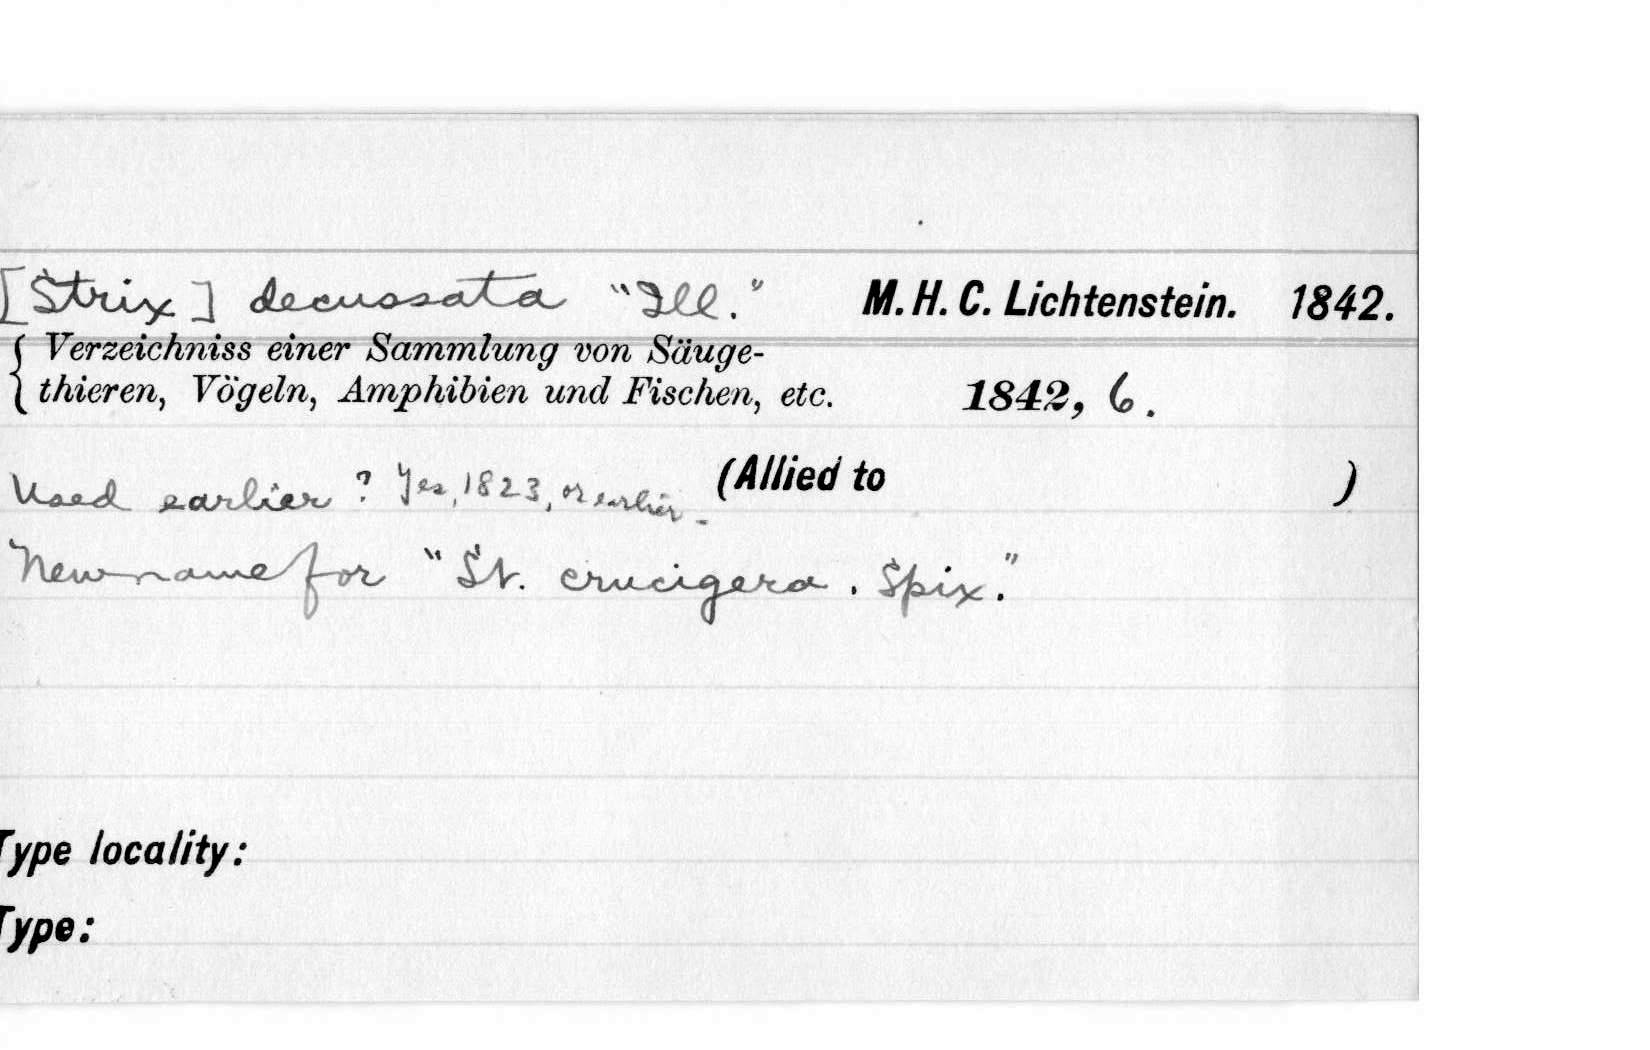 [Strix] decussata "Ill." M. H. C. Lichtenstein. 1842.
Verzeichniss einer Sammlung von Säuge-
thieren, Vögeln, Amphibien und Fischen, etc. 1842, 6.
Used earlier? Yes, 1823, or earlier. (Allied to )
New name for "St. crucigera. Spix."
Type locality:
Type: